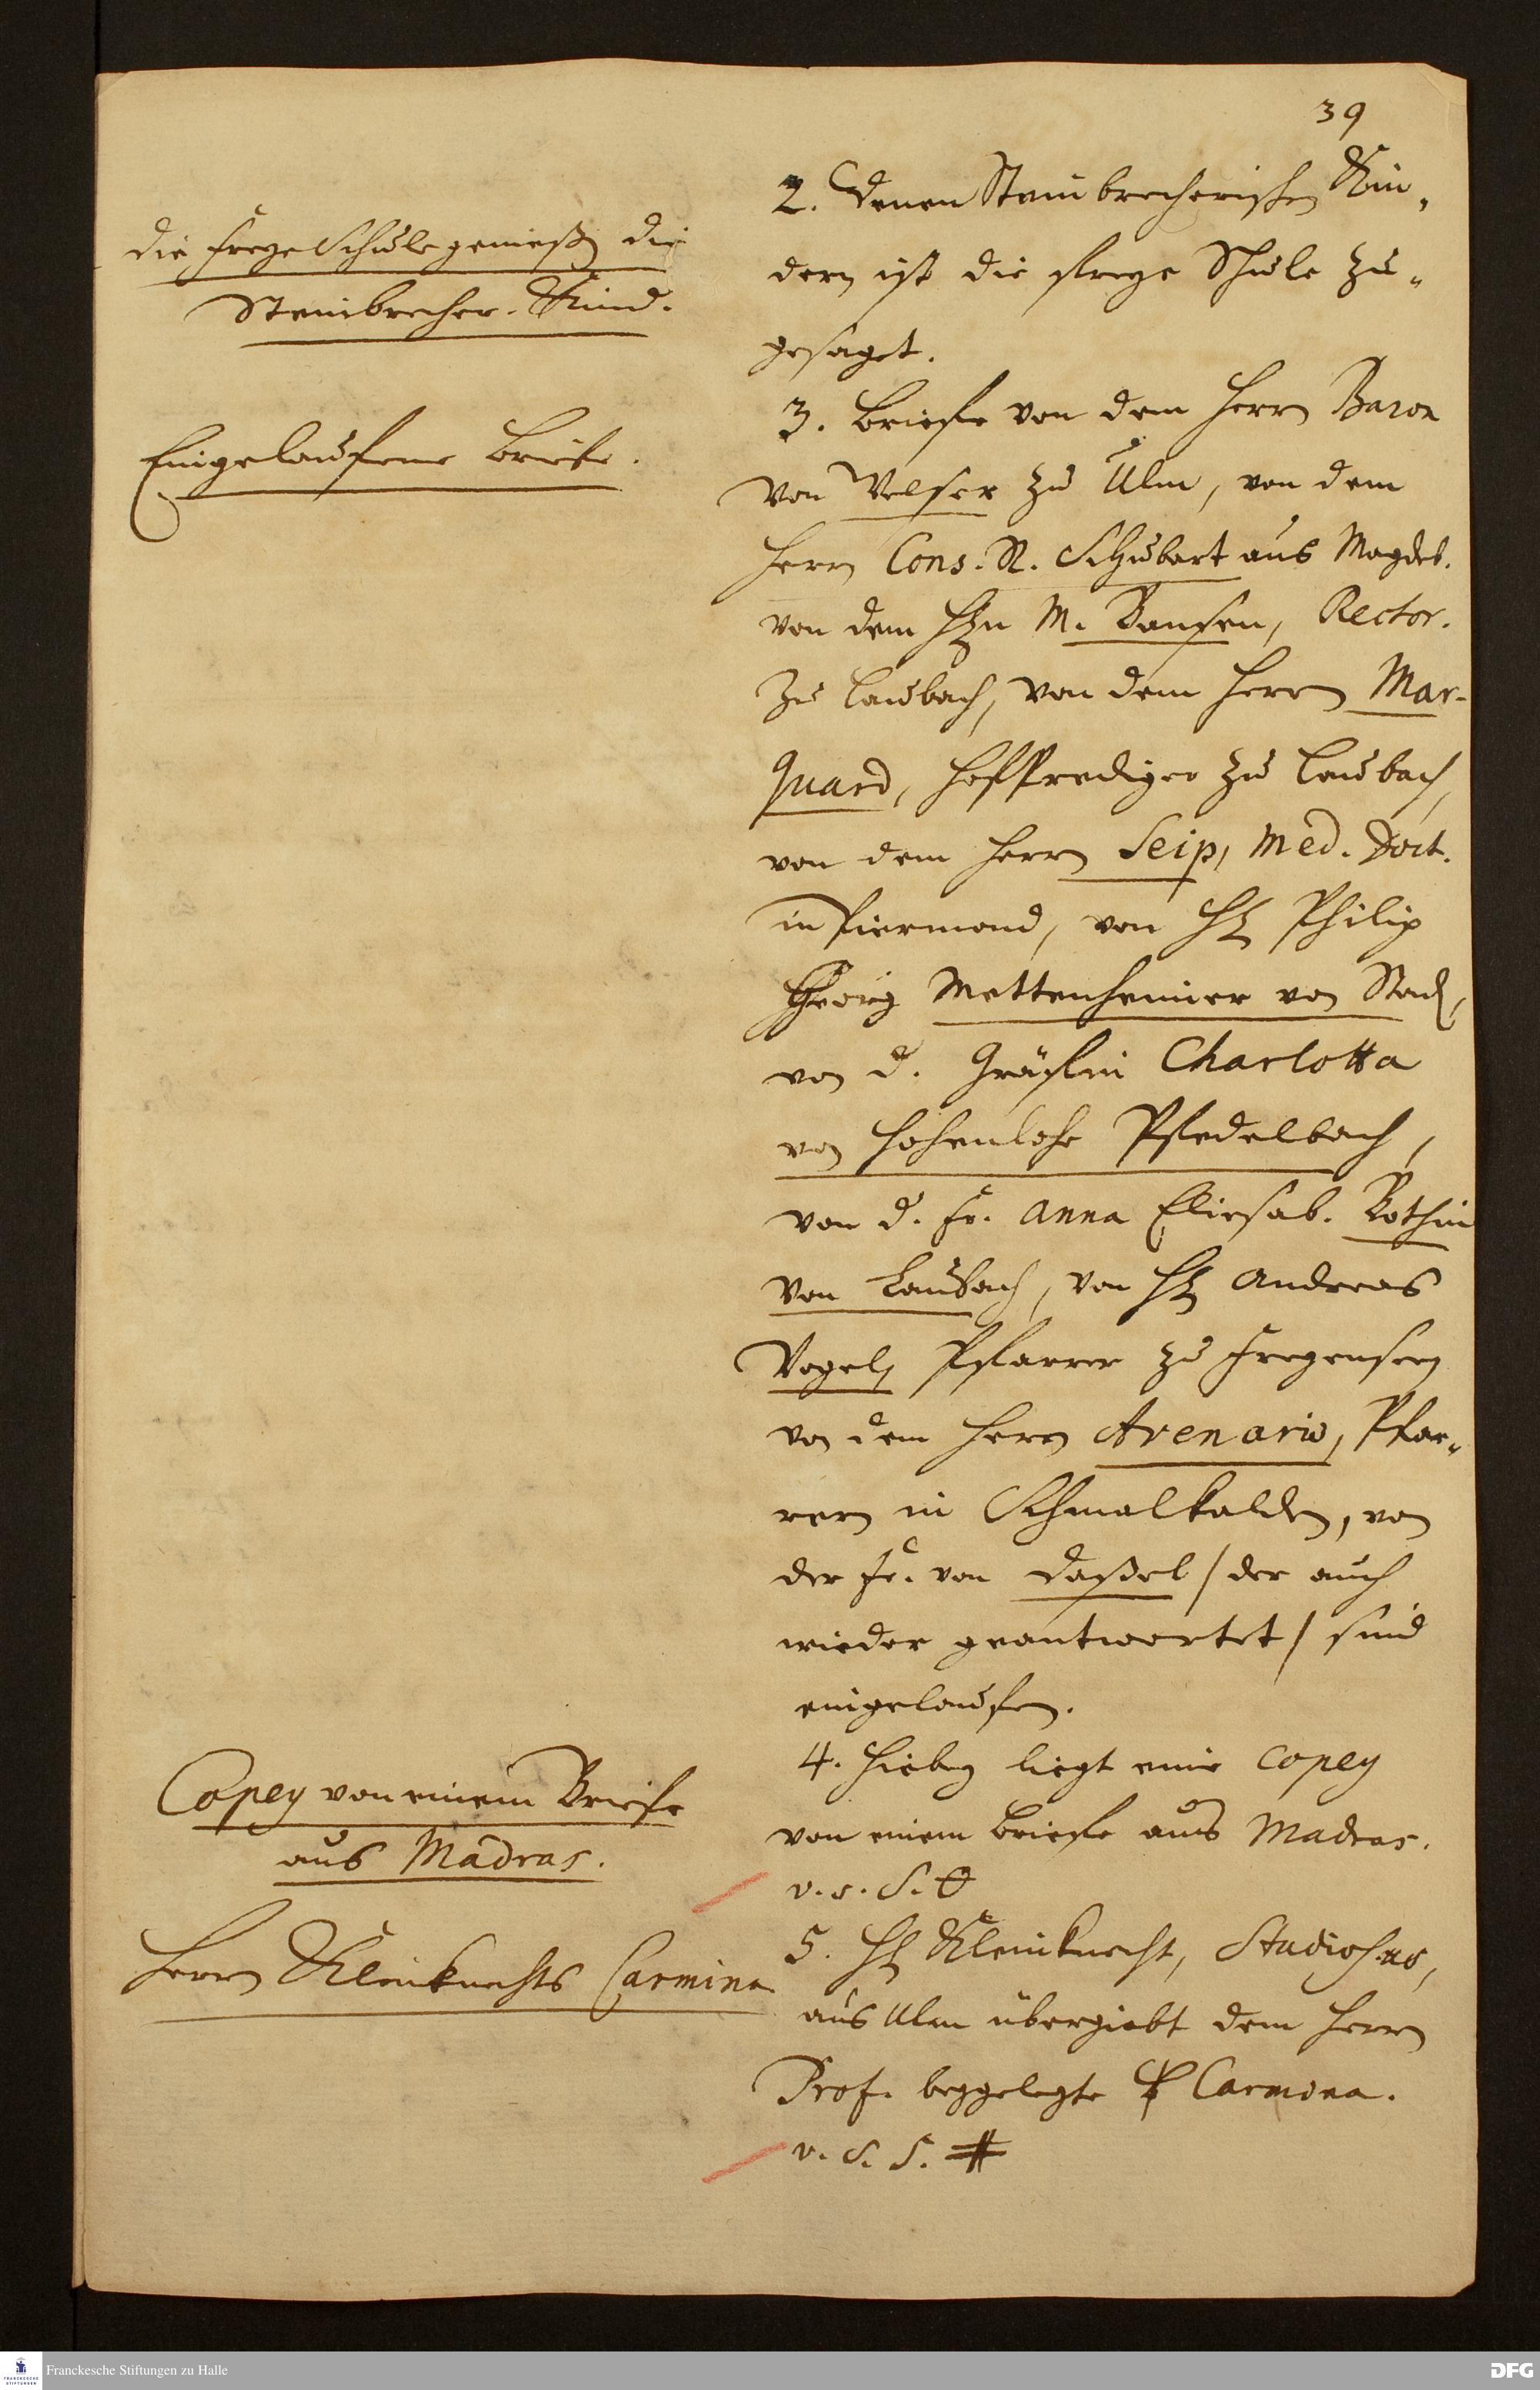 39
die freye Schule genieß. die
Steinbrecher. Kind.
2. Denen Steinbrecherischen Kin-
dern ist die freye Schule zu-
gesaget.
Eingelaufene Briefe.
3. Briefe von dem Herrn Baron
von Velser zu Ulm, von dem
Herrn Cons. R. Schubart aus Magdeb.
von dem HEn M. Bansen, Rector.
zu Laubach, von dem Herrn Mar-
quard, Hoffprediger zu Laubach,
von dem Herrn Seip, Med. Doct.
in Piermond, von H. Philip
Georg Mettenheimer von
von d. Gräfin Charlotta
von Hohenlohe Pfedelbach,
von d. Fr. Anna Eliesab. Bothin
von Laubach, von H. Andreas
Vogel, Pfarrer zu Freyensen
von dem Herrn Arenario, Pfar-
rern in Schmalkalden, von
der Fr. von Daßel / der auch
wieder geantwortet / sind
eingelaufen.
Copey von einem Briefe
aus Madras.
4. Hiebey liegt eine Copey
von einem Briefe aus Madras.
v. s. S.
Herrn Kleinknechts Carmina
5. H. Kleinknecht, Studiosus,
aus Ulm übergiebt dem Herrn
Prof. beygelegte Carmina.
v. S. S. #
Franckesche Stiftungen zu Halle
DFG